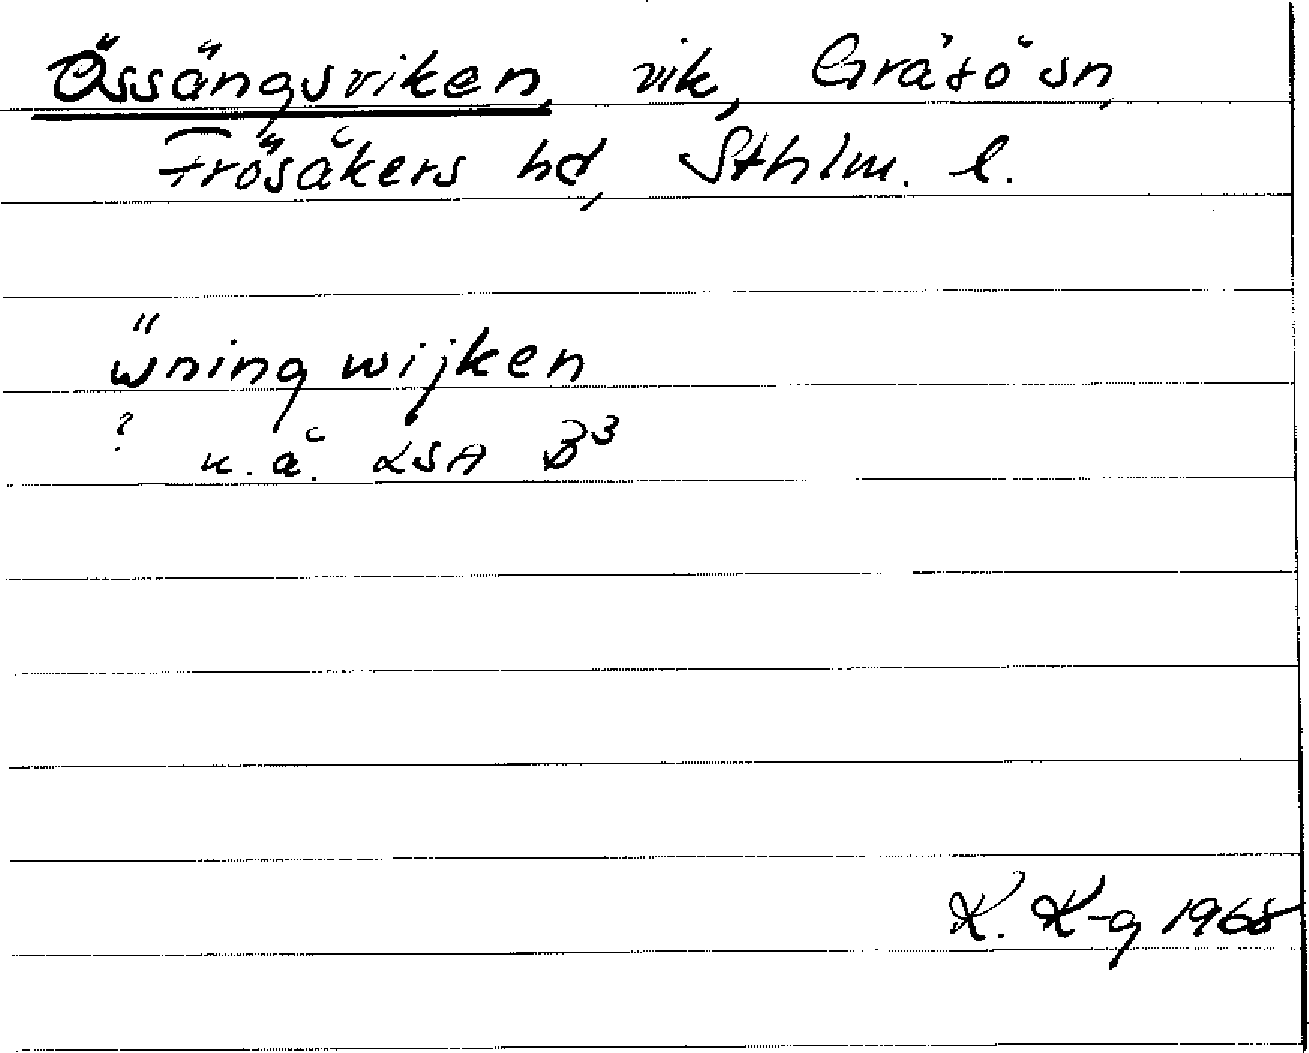 Össängsviken, vik, Gräsö sn,
Frösåkers hd, Sthlm. l.
ẅning wijken
? u.å. LSA B³
K. K-g 1968